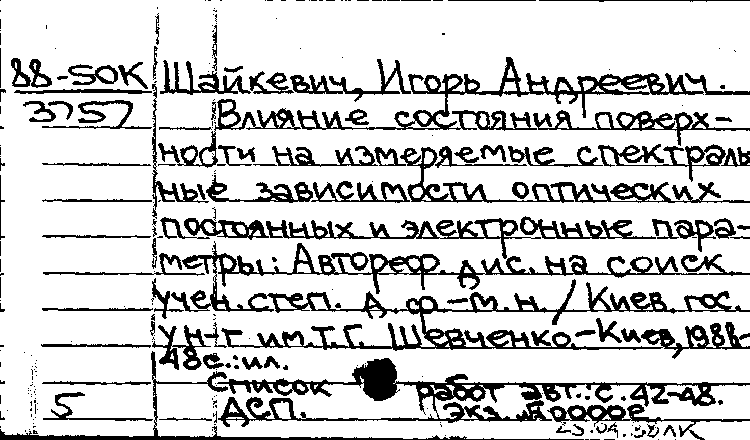 88-50К Шайкевич, Игорь Андреевич.
3757 Влияние состояния поверх-
ности на измеряемые спектраль
ные зависимости оптических
постоянных и электронные пара-
метры: Автореф. дис. на соиск.
учен. степ. д. ф.-м. н. / Киев. гос.
ун-т им. Т. Г. Шевченко.-Киев, 1988-
48с.: ил.
Список работ авт.: с. 42-48.
5 ДСП. Экз.